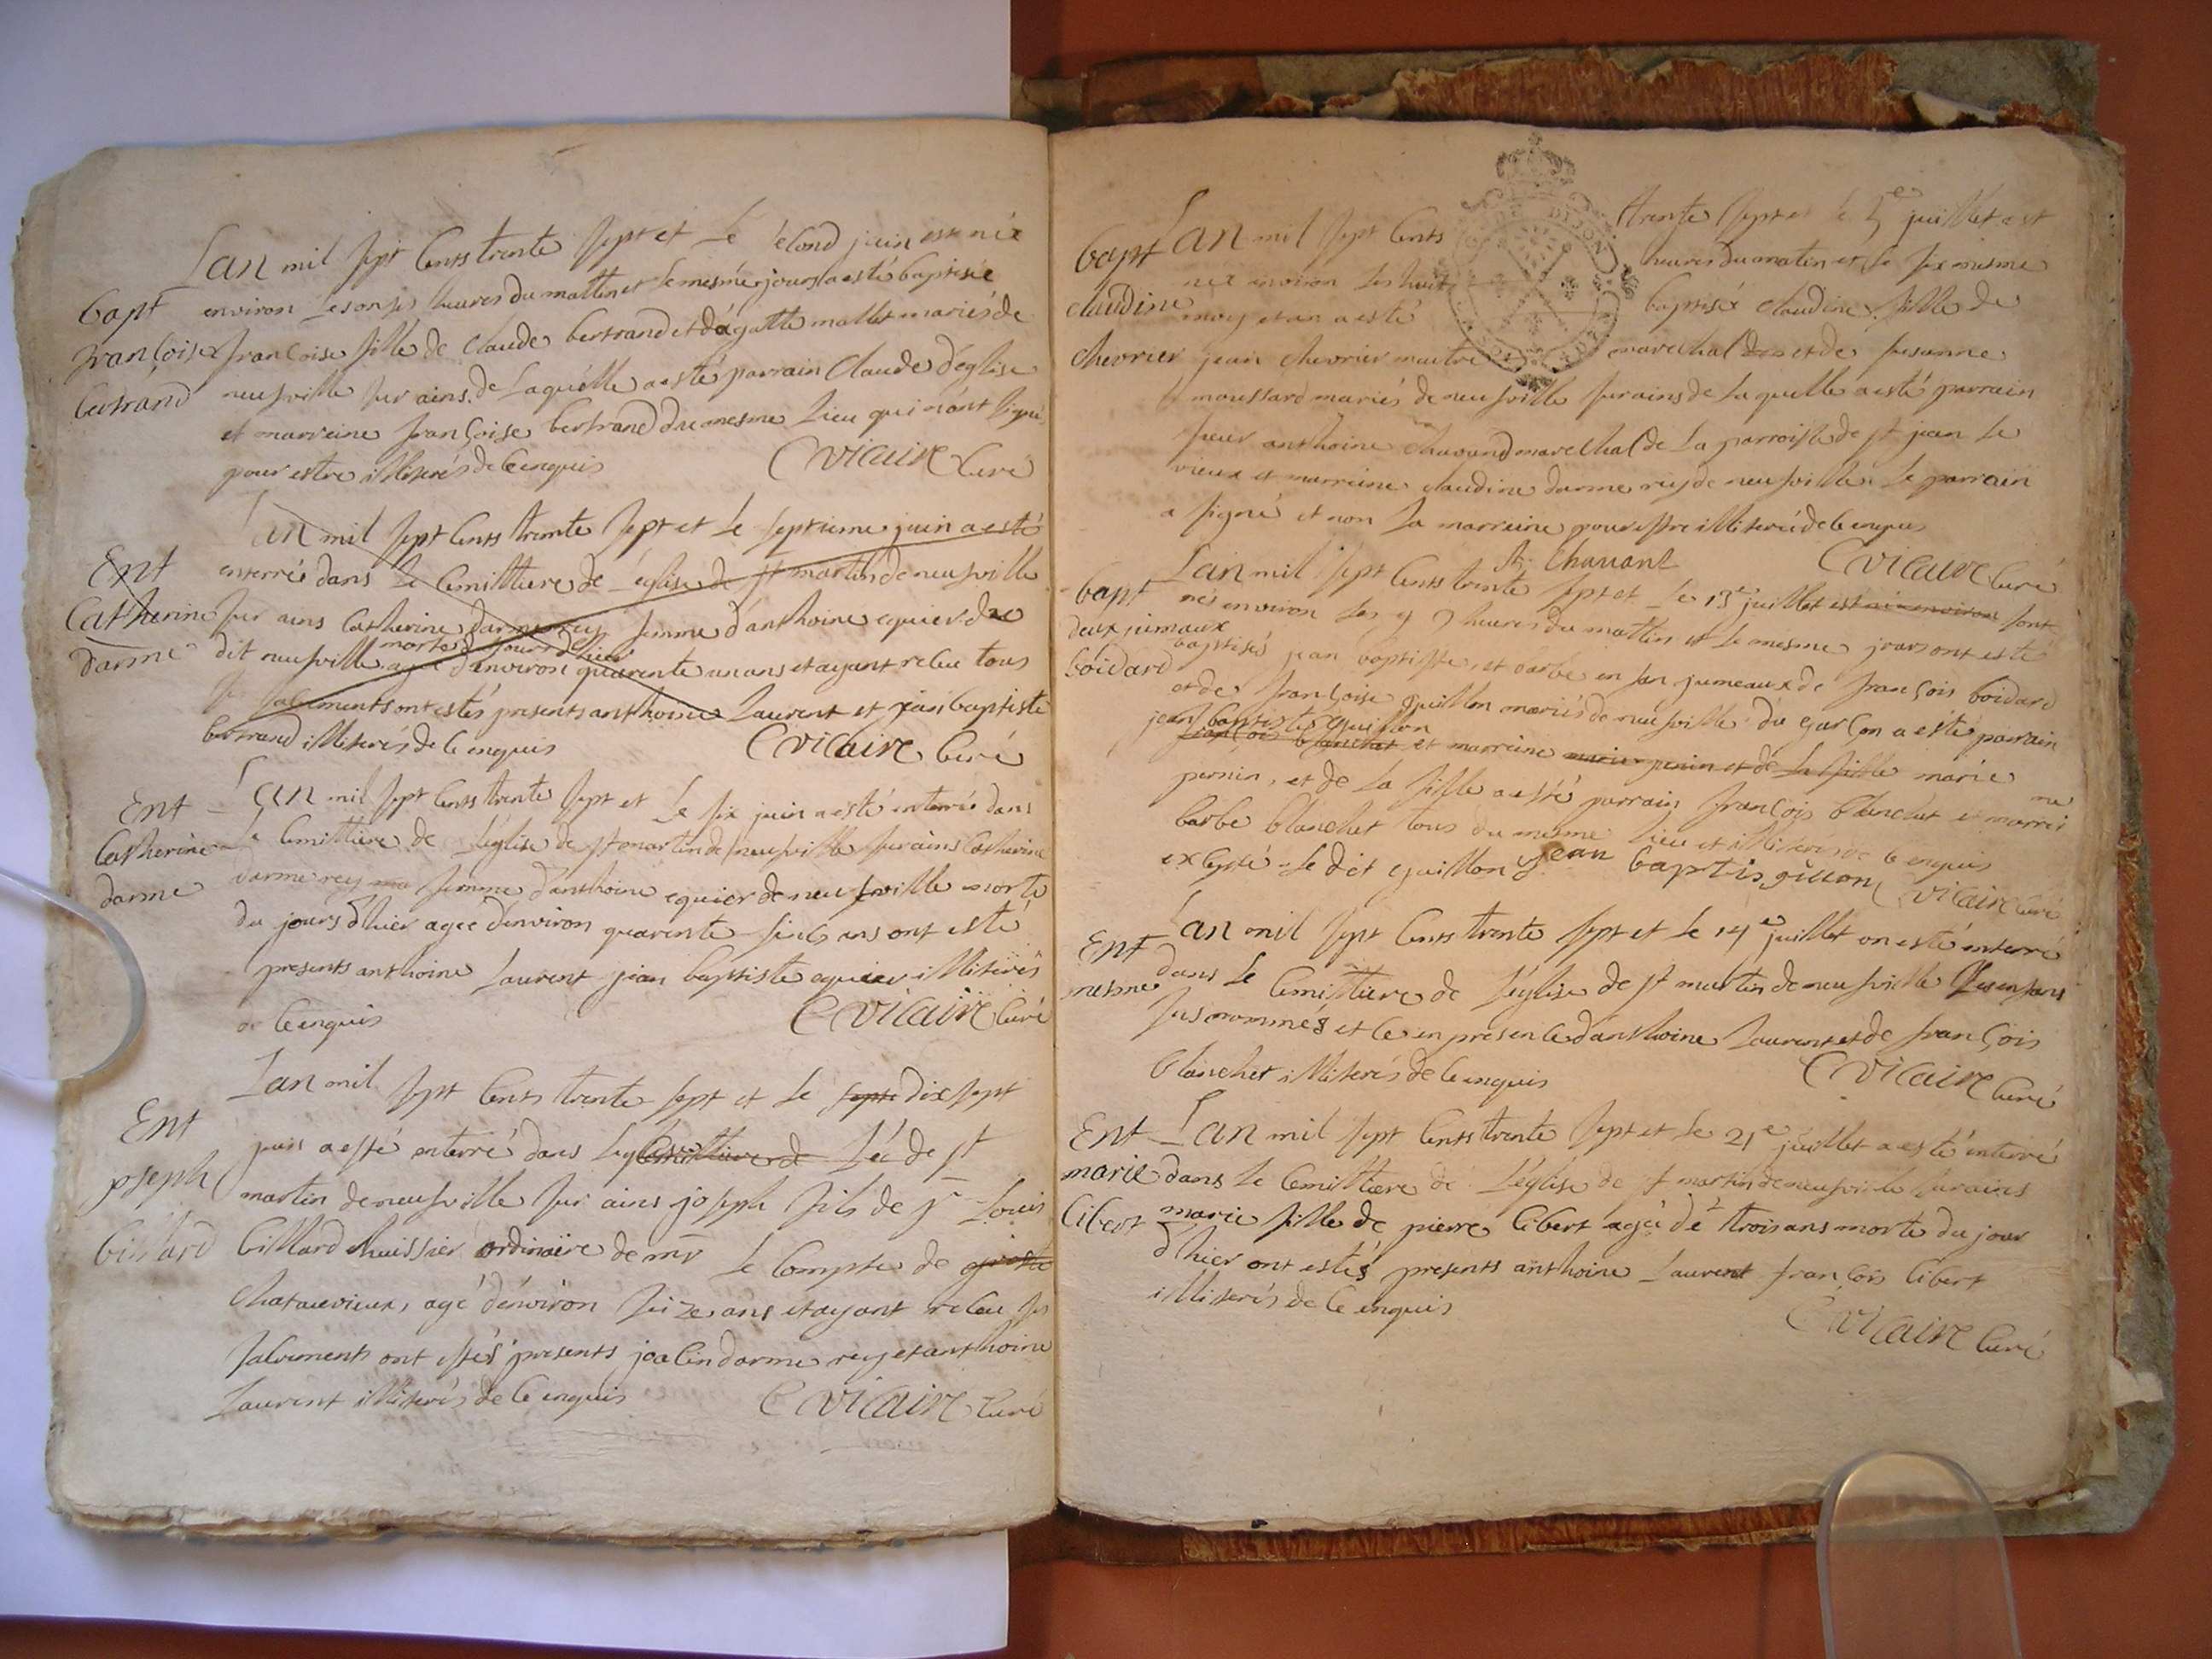 Lan mil sept cents trente sept et le second juin est née
Bapt
environ les onses heures du mattin et le mesme jours a esté baptisée
françoise
françoise fille de claude bertrand et d'agatte mallet mariés de
bertrand
neufville sur ains de laquelle a esté parrain claude deglise
et marreine françoise bertrand du mesme lieu qui n'ont signé
pour estre illiterés de ce enquis
C vicaire curé
Lan mil sept cents trente sept et le septieme juin a esté
Ent
enterrée dans le cemittiere de l'eglise de st martin de neufville
Catherine
sur ains catherine darmerey femme d'anthoine equier du
darme
morte du jours d'hier
dit neufville agée d'environ quarente un ans et ayant receu tous
ses sacrements ont estés presents anthoine laurent et jean baptiste
bertrand illiterés de ce enquis
C vicaire curé
Ent
Lan mil sept cents trente sept et le six juin a esté enterrée dans
Catherine
le cemittiere de l'eglise de st martin de neufville sur ains catherine
darme
darmerey femme d'anthoine equier de neufville morte
du jours d'hier agée d'environ quarente ans ont esté
presents anthoine laurent jean baptiste equier illiterés
de ce enquis
C vicaire curé
Lan mil sept cents trente sept et le septi dix sept
Ent
juin a esté enterré dans l'eglise cemittiere de de st
joseph
martin de neufville sur ains joseph fils de sr louis
billard
billard huissier ordinaire de mr le compte de
chatauvieux, agé d'environ seize ans et ayant receu ses
sacrements ont estés presents joacin darmerey et anthoine
laurent illiterés de ce enquis
C vicaire curé
DIJON
bapt
Lan mil sept cents trente sept et le 5e juillet est
née environ les huit heures du matin et le six mesme
claudine
moy et an a esté baptisée claudine fille de
chevrier
jean chevrier maitre marechal et de susanne
moussard mariés de neufville sur ains de laquelle a esté parrain
sieur anthoine chavand marechal de la parroisse de st jean le
vieux et marreine claudine darmerey de neufville le parrain
a signé et non la marreine pour estre illiterée de ce enquis
A. Chavant
C vicaire curé
bapt
Lan mil sept cents trente sept et le 13e juillet est né environ sont
deux jumaux
nés environ les 9 heures du mattin et le mesme jours ont esté
boidard
baptisés jean baptiste et barbe enfan jumeaux de françois boidard
et de françoise guillon mariés de neufville du garçon a esté parrain
jean baptiste guillon
françois blanchet et marreine marie pernin et de la fille marie
pernin, et de la fille a esté parrain françois blanchet et marrei
ne
barbe blanchet tous du mesme lieu et illiterés de ce enquis
excepté le dit guillon jean baptis gillon C vicaire curé
Lan mil sept cents trente sept et le 14e juillet on esté enterré
Ent
dans le cemittiere de l'eglise de st martin de neufville les enfans
mesme
susnommés et ce en presence d'anthoine laurent et de françois
blanchet illiterés de ce enquis
C vicaire curé
Ent
Lan mil sept cents trente sept et le 21e juillet a esté enterré
marie
dans le cemittiere de l'eglise de st martin de neufville sur ains
libert
marie fille de pierre libert agée de trois ans morte du jour
d'hier ont estés presents anthoine laurent françois libert
illiterés de ce enquis
C vicaire curé